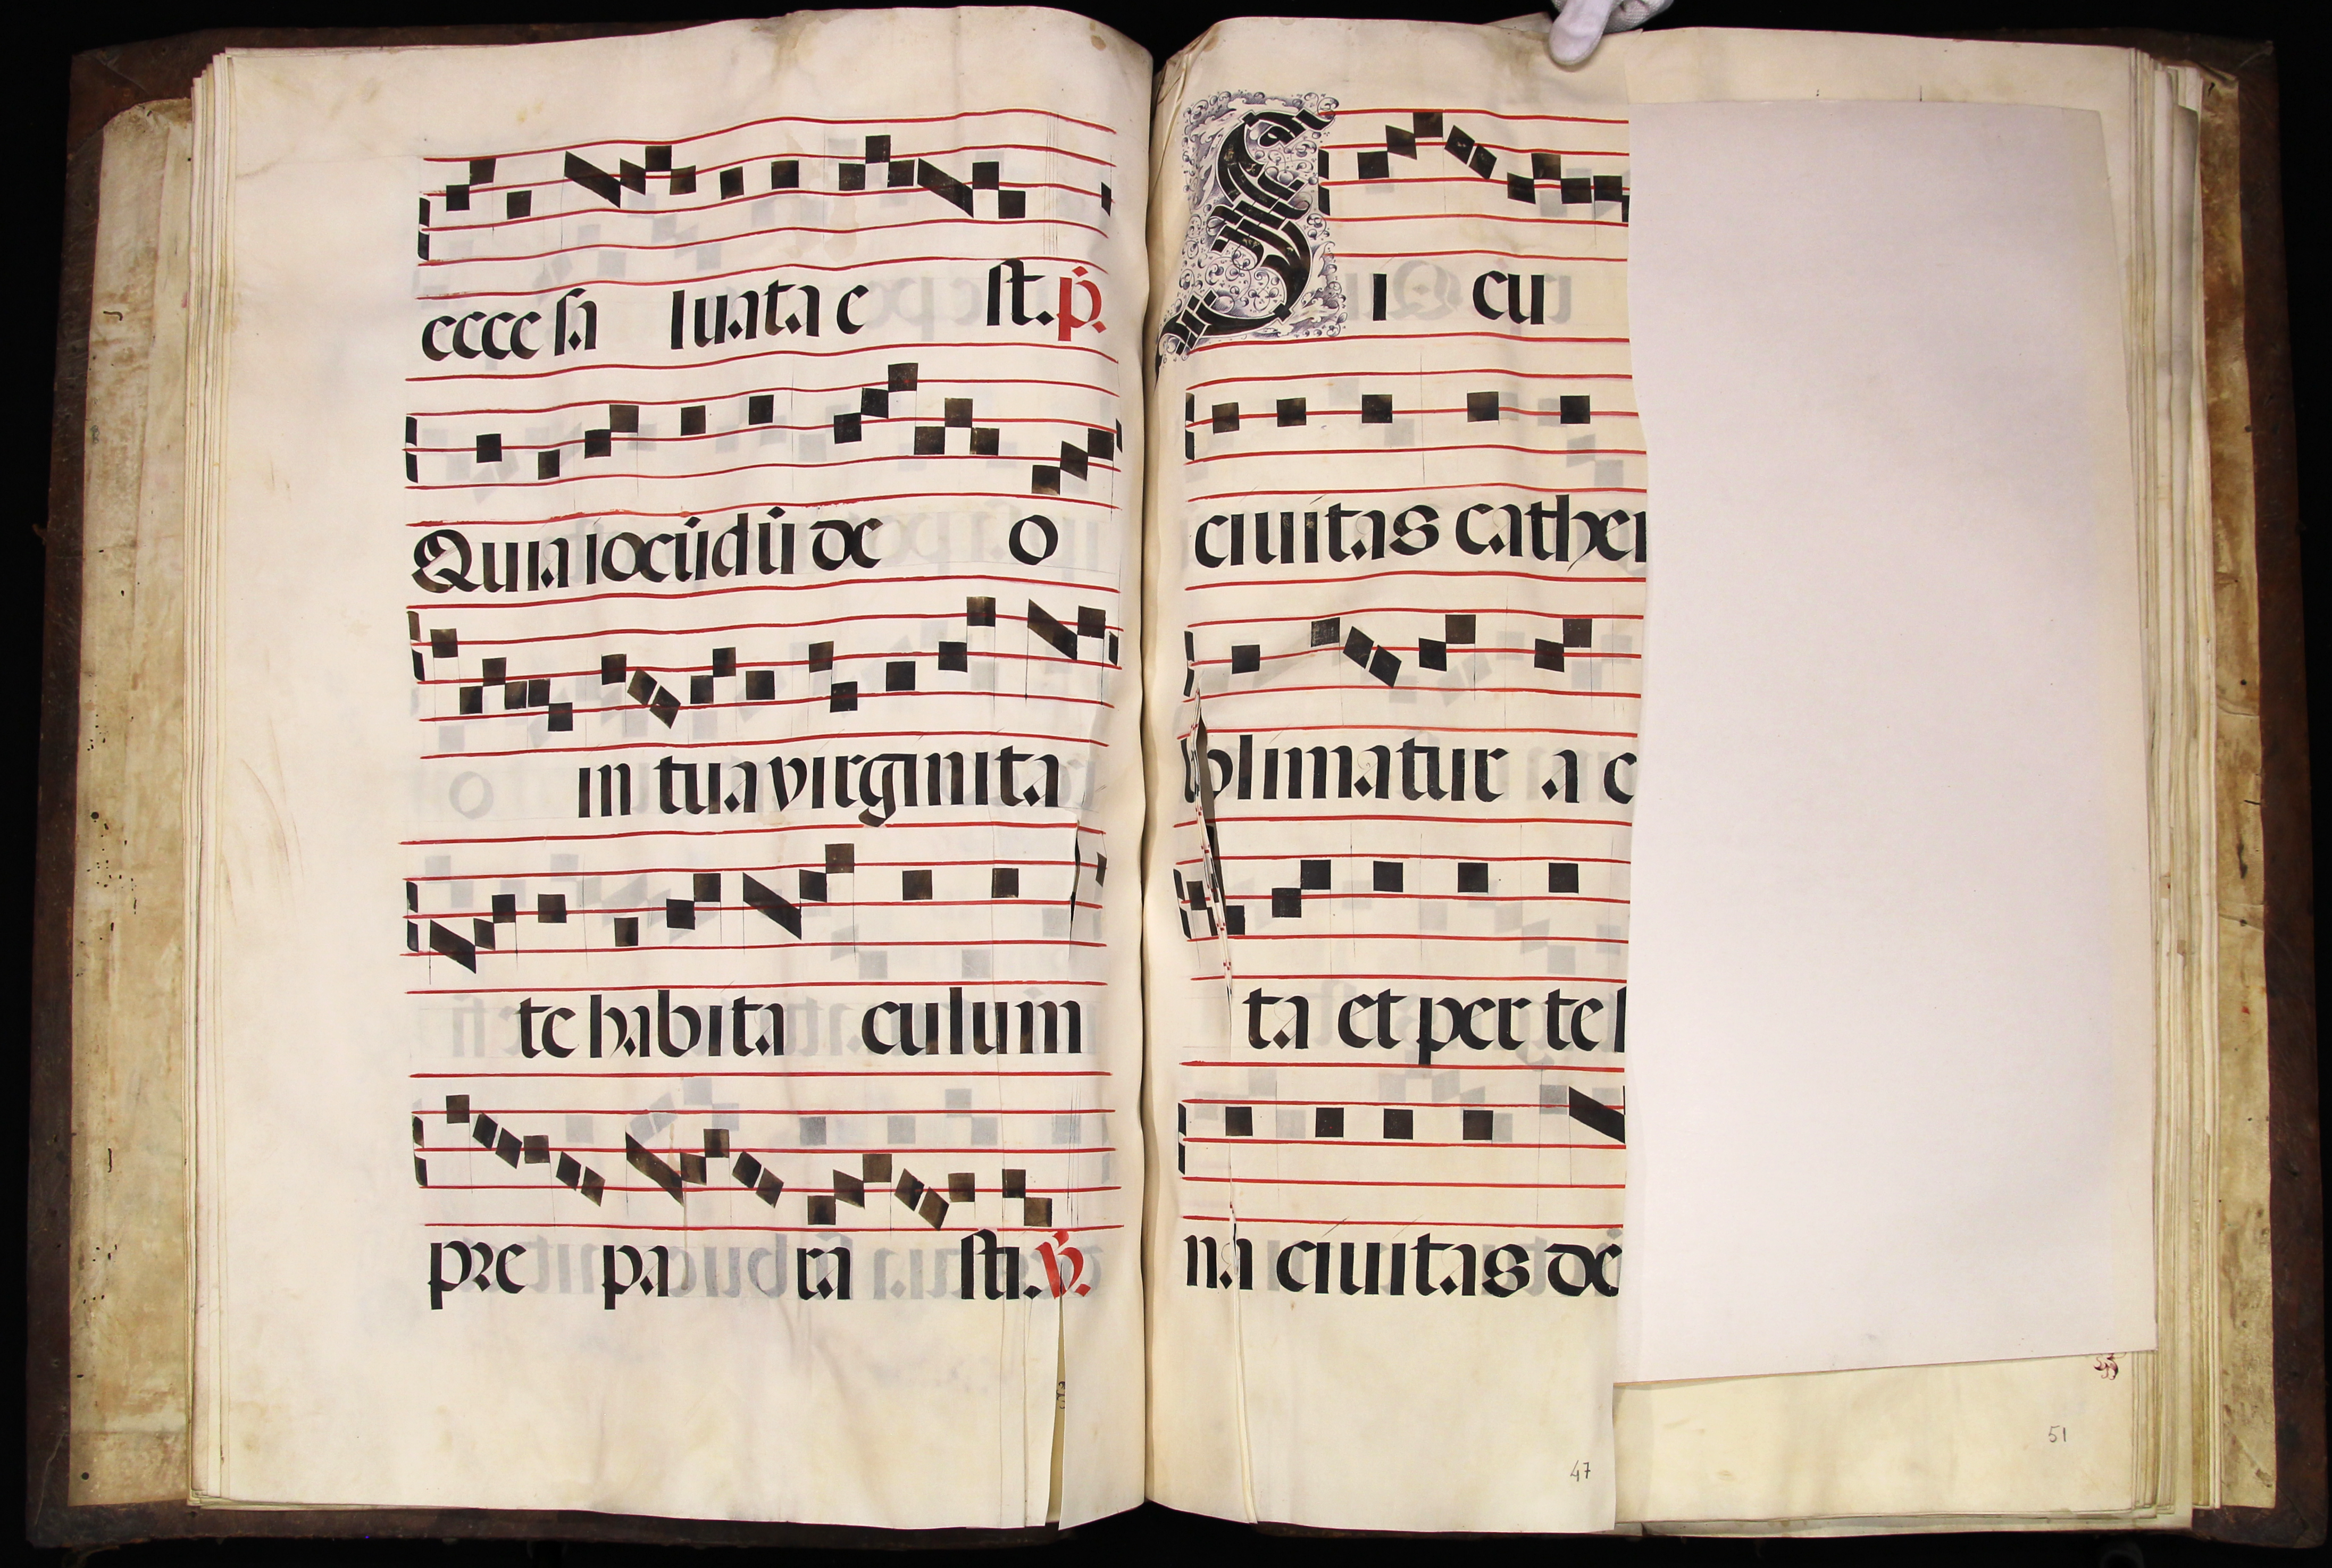 cccc sa luata e st. p.
Quia iocūdū de o
in tua virginita
te habita culum
pre pa ra sti. V.
Sicu
ciuitas cather
blimatur a c
ta et per te
na ciuitas de
47
51